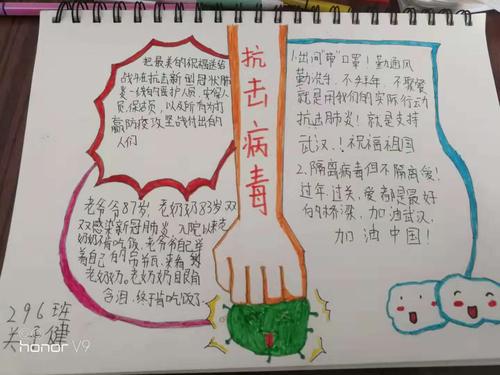 把最美的祝福送给
战斗在抗击新型冠状肺
炎一线的医护人员,安保人
员,保洁员,以及所有为打
赢防疫攻坚战付出的
人们
抗击病毒
1.出门“带”口罩!勤通风
勤洗手,不拜年,不聚餐
就是用我们的实际行动
抗击肺炎!就是支持
武汉.!祝福祖国
2.隔离病毒但不隔离爱!
过年过关,爱都是最好
的桥梁,加油武汉,
加油中国!
老爷爷87岁,老奶奶83岁双
双感染新冠肺炎,入院以来
奶奶不肯吃饭,老爷爷自己举
着自己的吊瓶,来看
老奶奶。老奶奶眼眶
含泪,终于肯吃饭了
296班
关子健
honor V9